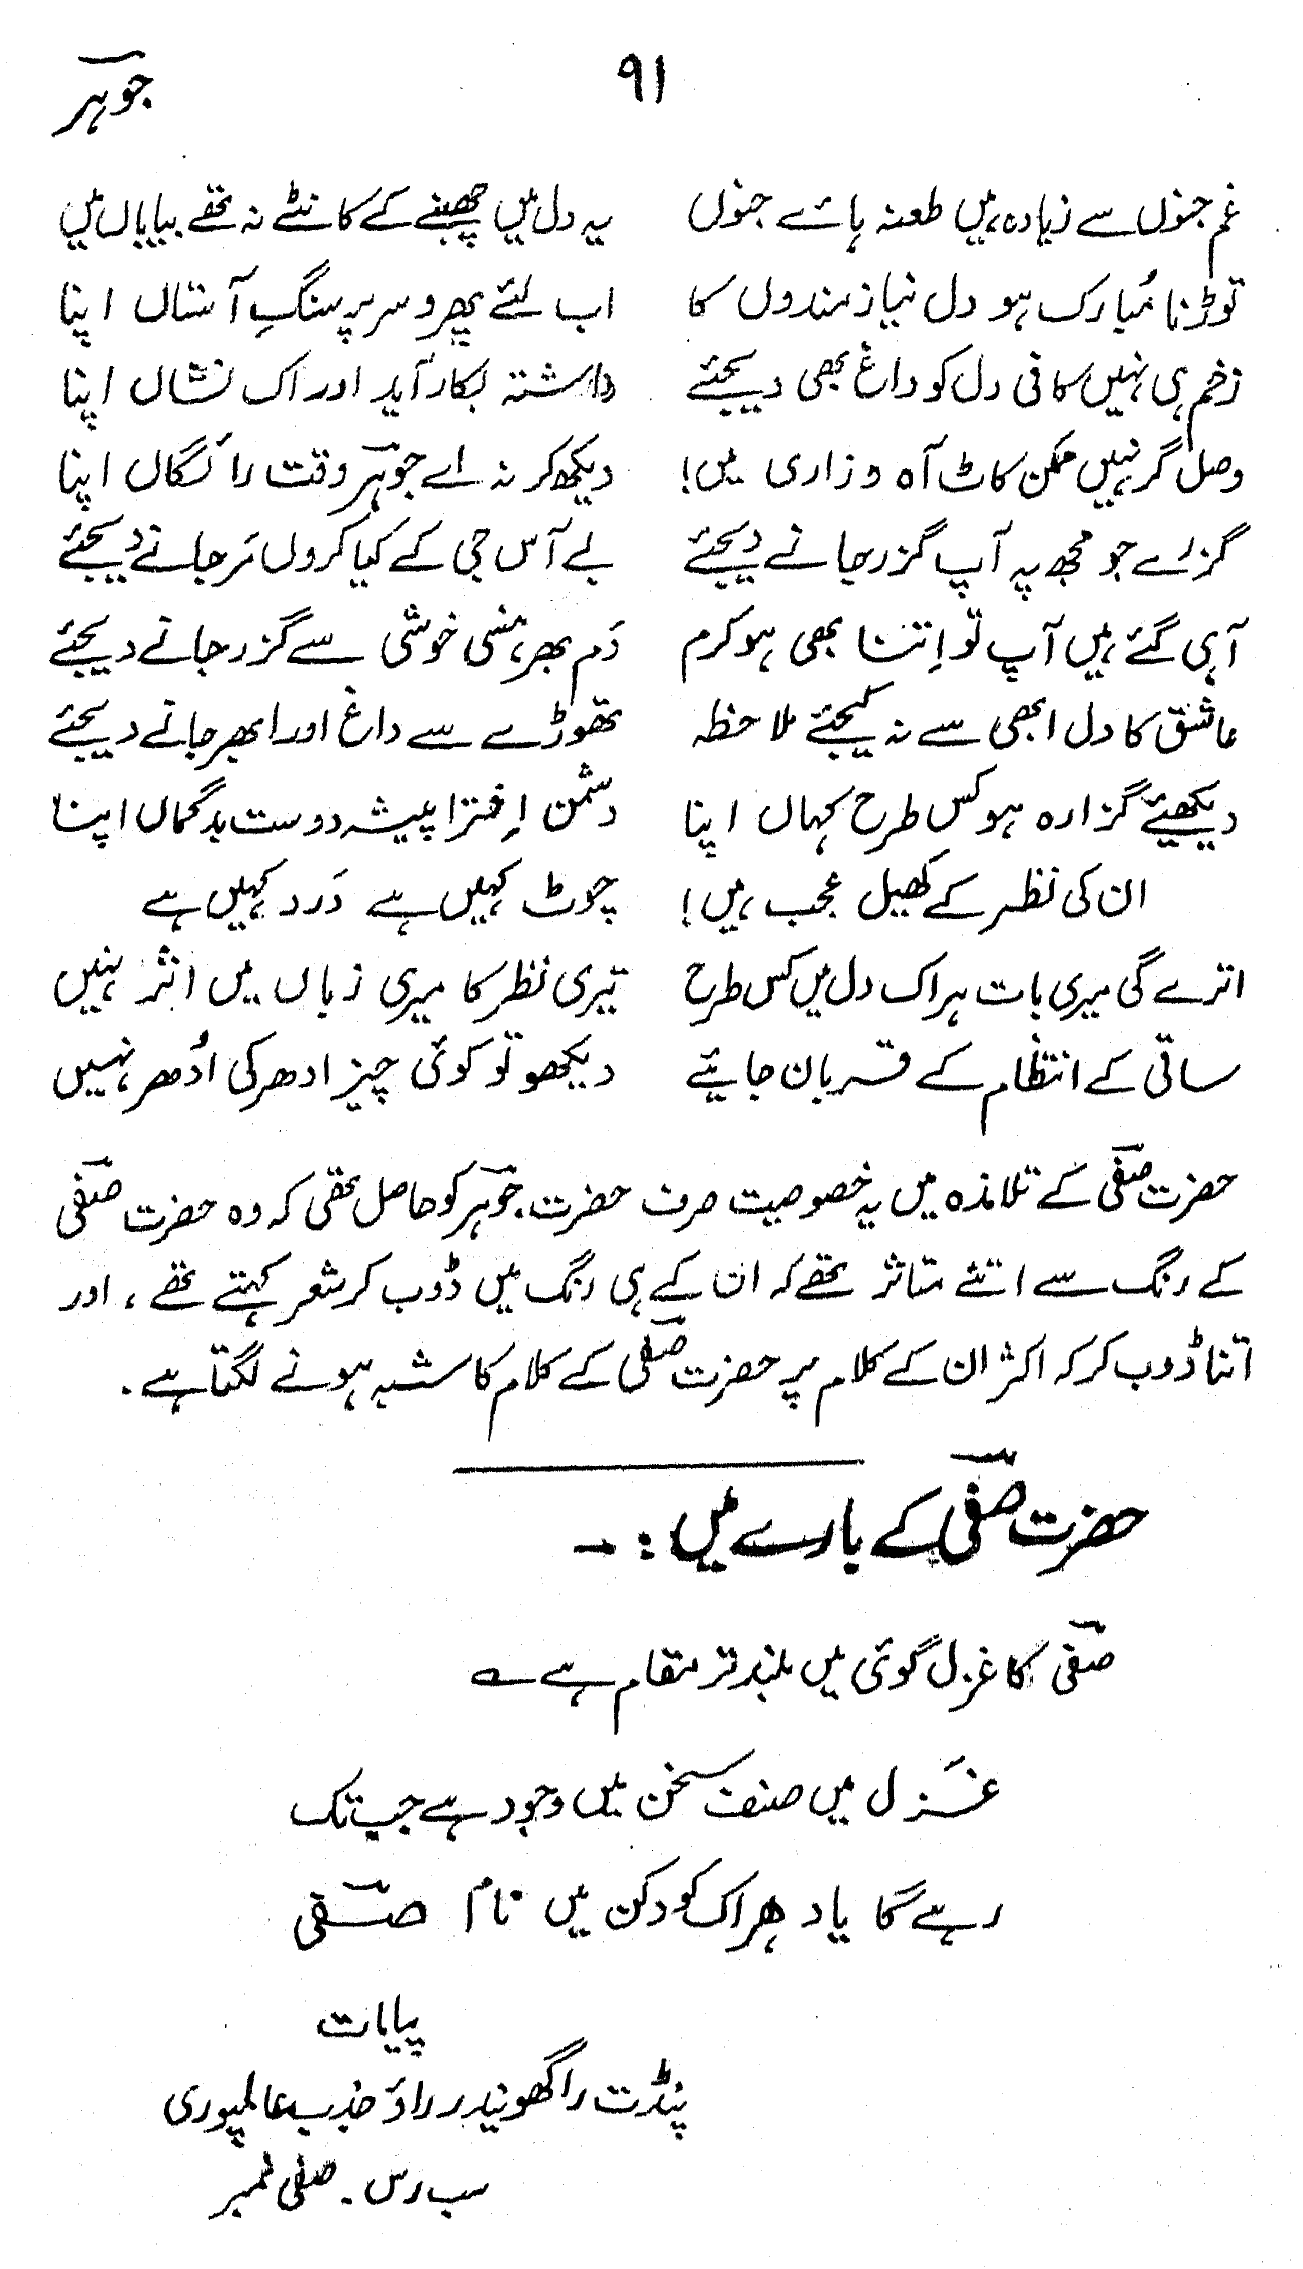 جوہر
۹۱
غم جنوں سے زیادہ ہیں طعنہ ہائے جنوں یہ دل میں چھبنے کے کانٹے نہ تھے بیاباں میں
توڑنا مُبارک ہو دل نیاز مندوں کا اب لئے پھرو سر پر سنگِ آستاں اپنا
زخم ہی نہیں کافی دل کو داغ بھی دیجئے داشتہ بکار آید اور اک نشاں اپنا
وصل گر نہیں ممکن کاٹ آہ و زاری میں! دیکھ کر نہ اے جوہر وقت رائگاں اپنا
گزرے جو مجھ پہ آپ گزر جانے دیجئے بے آس جی کے کیا کروں مَر جانے دیجئے
آ ہی گئے ہیں آپ تو اِتنا بھی ہو کرم دَم بھر ہنسی خوشی سے گزر جانے دیجئے
عاشق کا دل ابھی سے نہ کیجئے ملاحظہ تھوڑے سے داغ اور ابھر جانے دیجئے
دیکھئے گزارہ ہو کس طرح کہاں اپنا دشمن اِفترا پیشہ دوست بدگماں اپنا
ان کی نظر کے کھیل عجب ہیں! چوٹ کہیں ہے دَرد کہیں ہے
اترے گی میری بات ہر اک دل میں کس طرح تیری نظر کا میری زباں میں اثر نہیں
ساقی کے انتظام کے قربان جایئے دیکھو تو کوئی چیز ادھر کی اُدھر نہیں
حضرت صفی کے تلامذہ میں یہ خصوصیت صرف حضرت جوہر کو حاصل تھی کہ وہ حضرت صفی
کے رنگ سے اتنے متاثر تھے کہ ان کے ہی رنگ میں ڈوب کر شعر کہتے تھے، اور
اتنا ڈوب کر کہ اکثر ان کے کلام پر حضرت صفی کے کلام کا شبہ ہونے لگتا ہے۔
حضرت صفی کے بارے میں :۔
صفی کا غزل گوئی میں بلند تر مقام ہے ؎
غزل میں صنف سخن میں وجود ہے جب تک
رہے گا یاد ہر اک کو دکن میں نام صفی
پایات
پنڈت راگھویندر راؤ جذب عالمپوری
سب رس۔ صفی نمبر